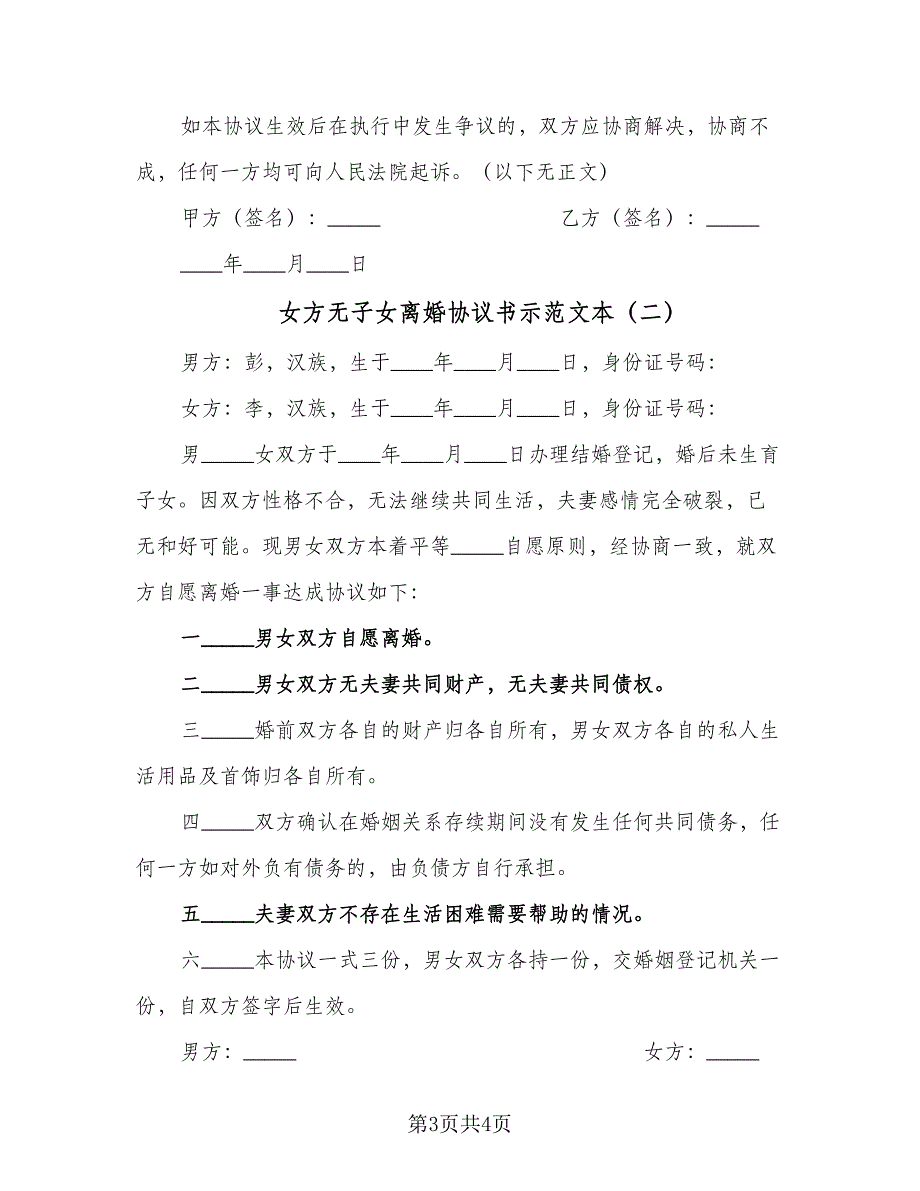 如本协议生效后在执行中发生争议的，双方应协商解决，协商不
成，任何一方均可向人民法院起诉。（以下无正文）
甲方（签名）：_____ 乙方（签名）：_____
____年____月____日
女方无子女离婚协议书示范文本（二）
男方：彭，汉族，生于____年____月____日，身份证号码：
女方：李，汉族，生于____年____月____日，身份证号码：
男_____女双方于____年____月____日办理结婚登记，婚后未生育
子女。因双方性格不合，无法继续共同生活，夫妻感情完全破裂，已
无和好可能。现男女双方本着平等_____自愿原则，经协商一致，就双
方自愿离婚一事达成协议如下：
一_____男女双方自愿离婚。
二_____男女双方无夫妻共同财产，无夫妻共同债权。
三_____婚前双方各自的财产归各自所有，男女双方各自的私人生
活用品及首饰归各自所有。
四_____双方确认在婚姻关系存续期间没有发生任何共同债务，任
何一方如对外负有债务的，由负债方自行承担。
五_____夫妻双方不存在生活困难需要帮助的情况。
六_____本协议一式三份，男女双方各持一份，交婚姻登记机关一
份，自双方签字后生效。
男方：_____ 女方：_____
第3页共4页